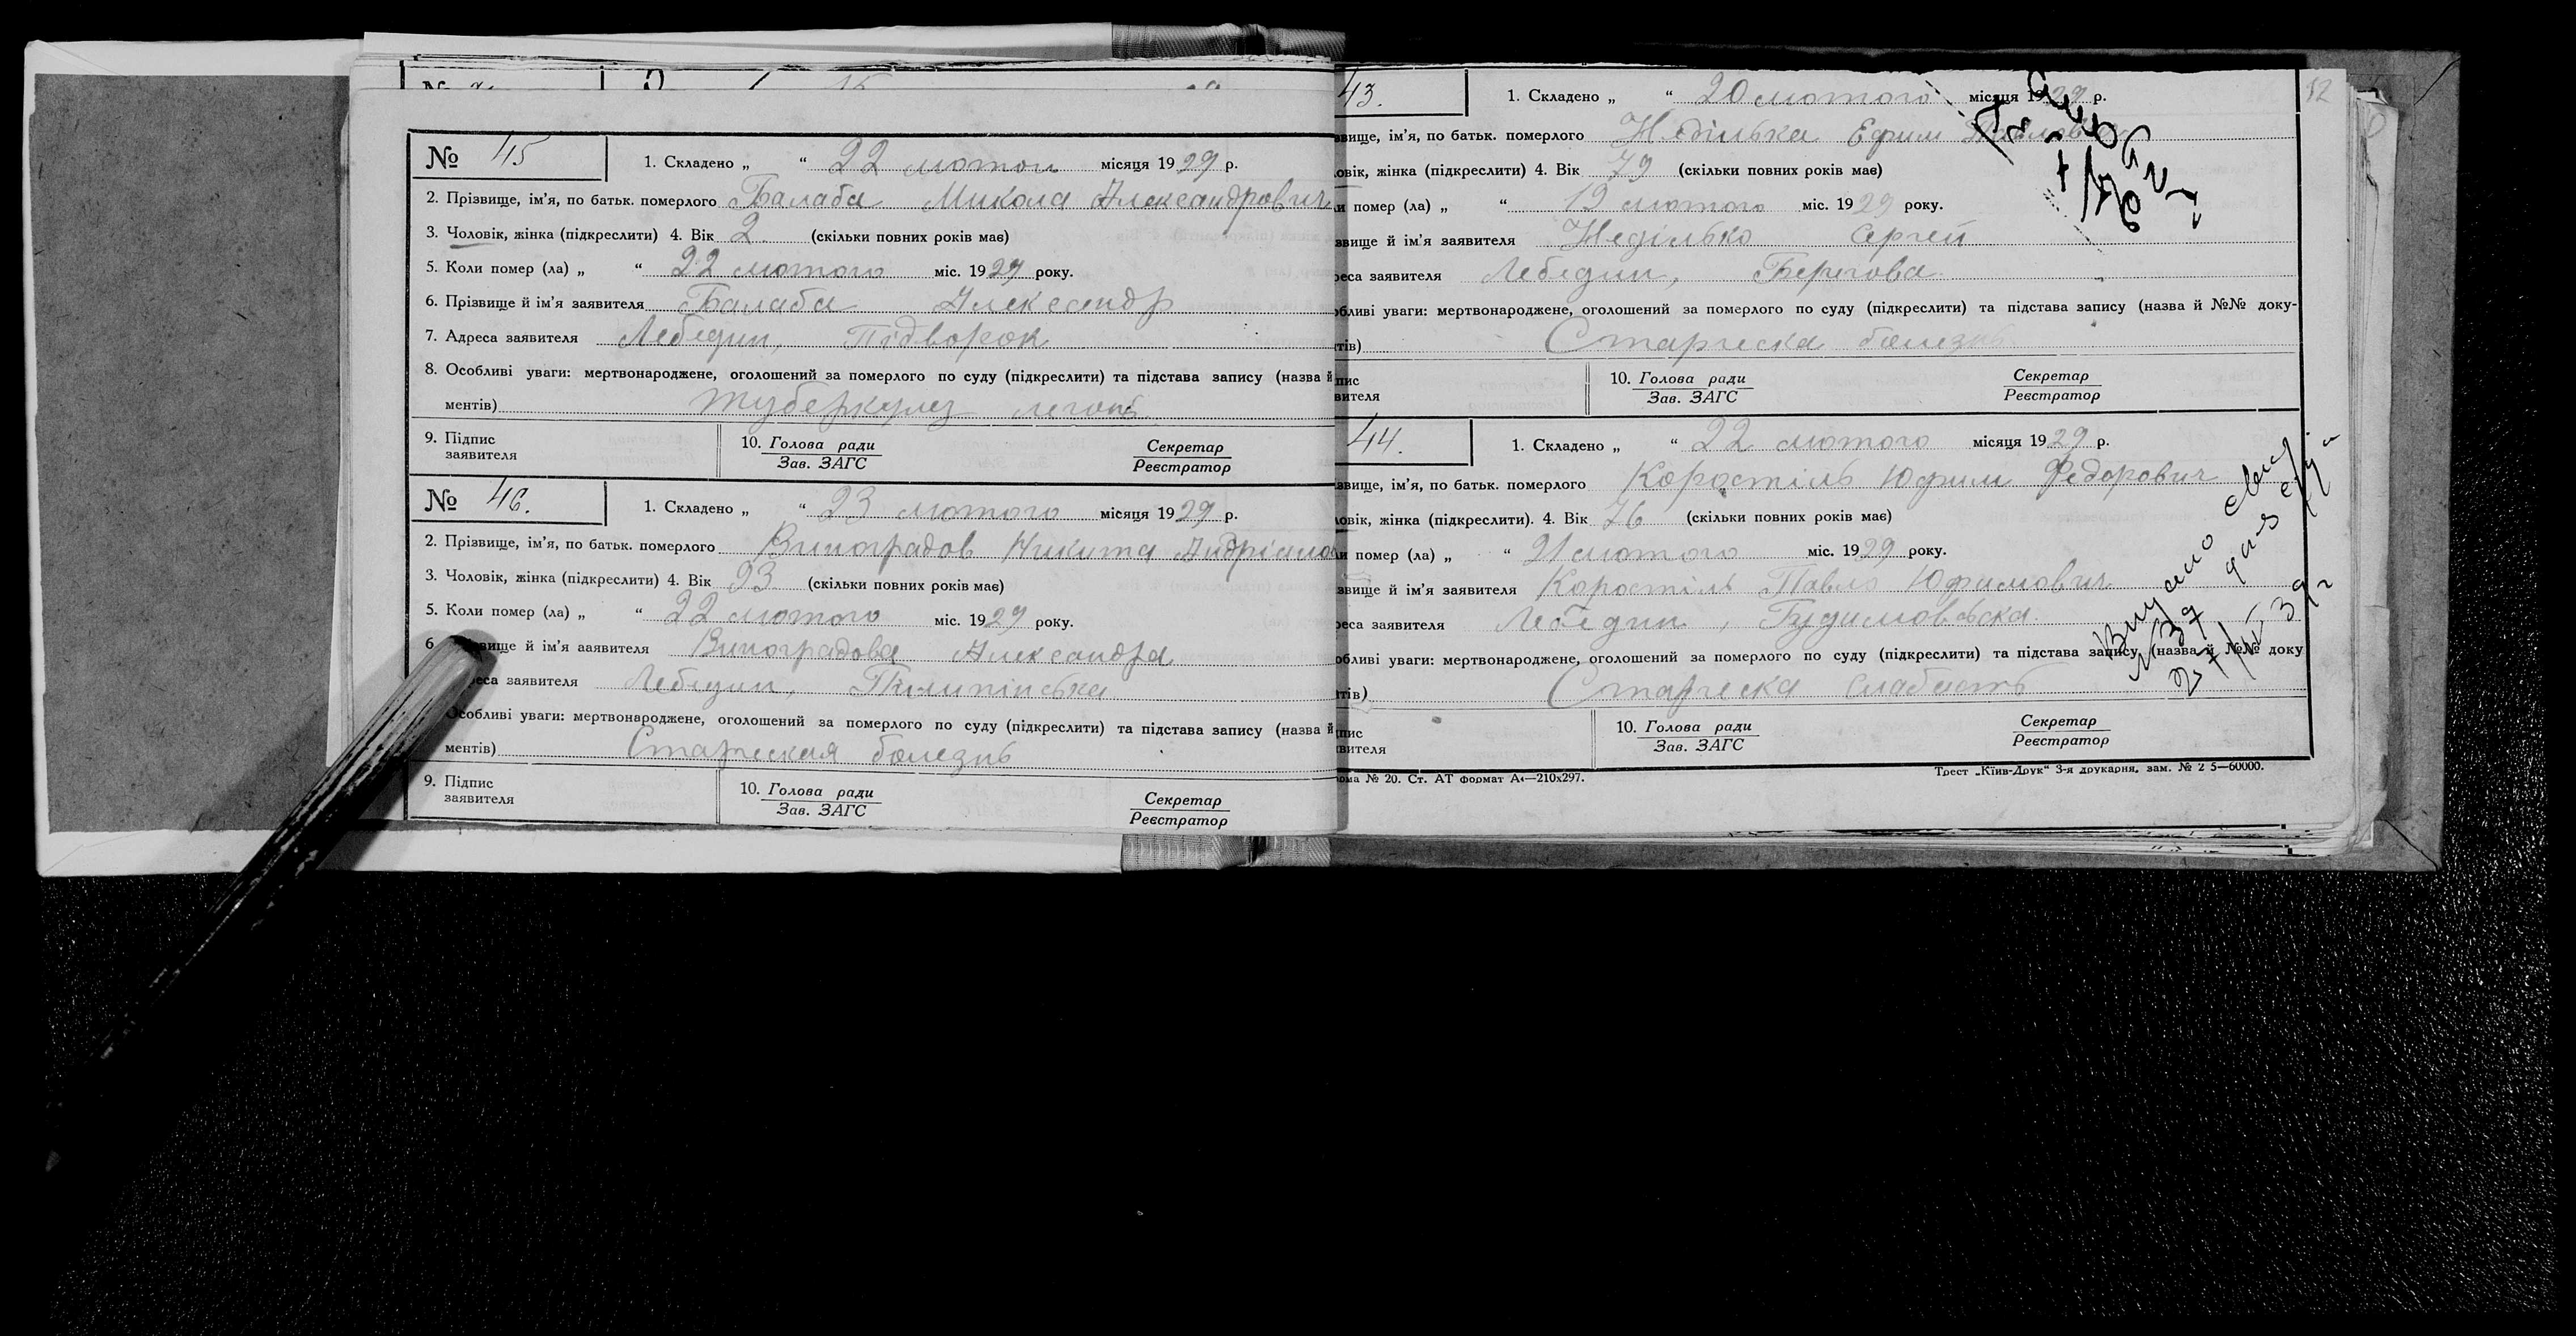 № 45
1. Складено „ “ 22 лютого місяця 1929 р.
2. Прізвище, ім'я, по батьк. померлого Балаба Микола Александрович
3. Чоловік, жінка (підкреслити) 4. Вік 2 (скільки повних років має)
5. Коли помер (ла) „ “ 22 лютого міс. 1929 року.
6. Прізвище й ім'я заявителя Балаба Александр
7. Адреса заявителя Лебедин, Підворок
8. Особливі уваги: мертвонароджене, оголошений за померлого по суду (підкреслити) та підстава запису (назва й
ментів) туберкулез
9. Підпис заявителя
10. Голова ради
Зав. ЗАГС
Секретар
Реєстратор
№ 46.
1. Складено „ “ 23 лютого місяця 1929 р.
2. Прізвище, ім'я, по батьк. померлого Виноградов Никита
3. Чоловік, жінка (підкреслити) 4. Вік 93 (скільки повних років має)
5. Коли помер (ла) „ “ 22 лютого міс. 1929 року.
6 вище й ім'я заявителя Виноградова Александра
еса заявителя Лебедин, Пилипівська
Особливі уваги: мертвонароджене, оголошений за померлого по суду (підкреслити) та підстава запису (назва й
ментів) Старческая болезнь
9. Підпис заявителя
10. Голова ради
Зав. ЗАГС
Секретар
Реєстратор
12
43.
1. Складено „ “ 20 лютого місяця 1929 р.
звище, ім'я, по батьк. померлого Неділька Ефим Павлович
ловік, жінка (підкреслити) 4. Вік 79 (скільки повних років має)
и помер (ла) „ “ 19 лютого міс. 1929 року.
звище й ім'я заявителя Неділько Сергей
реса заявителя Лебедин, Берегова
обливі уваги: мертвонароджене, оголошений за померлого по суду (підкреслити) та підстава запису (назва й №№ доку-
тів) Старческа болезнь
пис
вителя
10. Голова ради
Зав. ЗАГС
Секретар
Реєстратор
44.
1. Складено „ “ 22 лютого місяця 1929 р.
звище, ім'я, по батьк. померлого Коростіль Юфим Федорович
ловік, жінка (підкреслити). 4. Вік 76 (скільки повних років має)
и помер (ла) „ “ 21 лютого міс. 1929 року.
звище й ім'я заявителя Коростіль Павло Юфимович
реса заявителя Лебедин, Будимовська
обливі уваги: мертвонароджене, оголошений за померлого по суду (підкреслити) та підстава запису (назва й №№ доку
тів) Старческа слабость
пис
вителя
10. Голова ради
Зав. ЗАГС
Секретар
Реєстратор
рма № 20. Ст. АТ формат А4—210х297.
Трест „Київ-Друк“ 3-я друкарня, зам. № 2 5—60000.